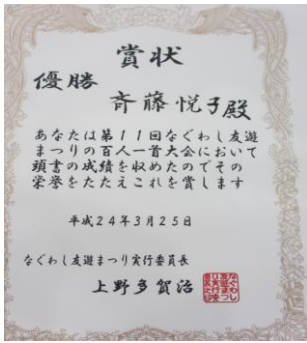 賞状
優勝
斉藤悦子殿
あなたは第11回なぐわし友遊
まつりの百人一首大会において
頭書の成績を収めたのでその
栄誉をたたえこれを賞します
平成24年3月25日
なぐわし友遊まつり実行委員長
上野多賀治